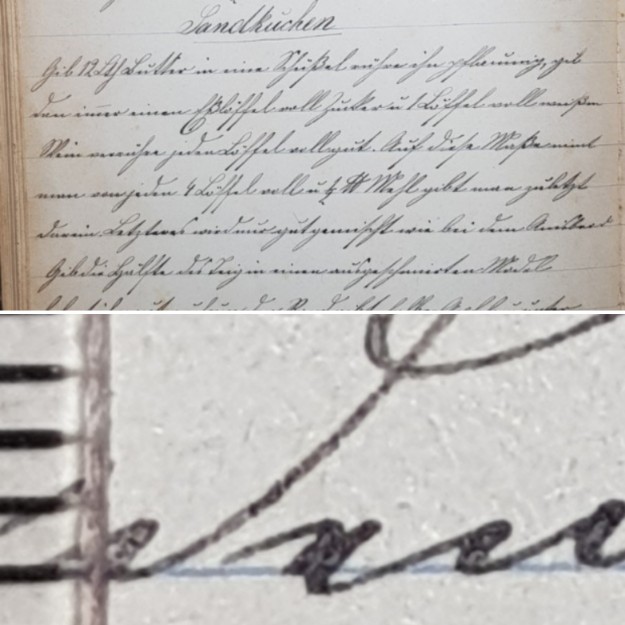 Sandkuchen
Gib 12 Lth Butter in eine Schüßel rühre ihn pflaumig, geb
den immer einen Eßlöffel voll Zucker u 1 Löffel voll weißen
Wein verrühre jeden Löffel voll gut. Auf diese Maße nimt
man von jeden 4 Löffel voll u ½ ℔ Mehl gibt man zuletzt
darein. Letzteres wird nur gut gemischt wie bei dem
Gib die Hälfte des Teig in einen ausgeschmierten Model